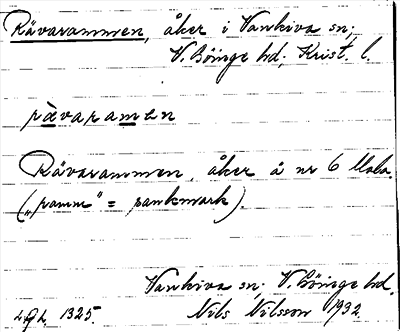 Rävarammen, åker i Vankiva sn;
V. Göinge hd; Krist. l.
rävaramen
Rävarammen, åker å nr 6 Mala.
("ramm" = sankmark).
Vankiva sn. V. Göinge hd.
Nils Nilsson 1932.
1325.